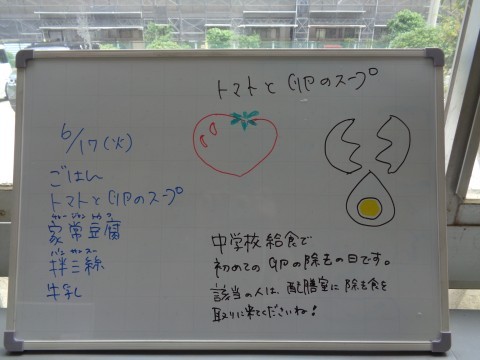 トマトと卵のスープ
6/17(火)
ごはん
トマトと卵のスープ
ジャージャン トウフ
家常豆腐
バン サンスー
拌三絲
牛乳
中学校給食で
初めての卵の除去の日です。
該当の人は、配膳室に除去食を
取りに来てくださいね!